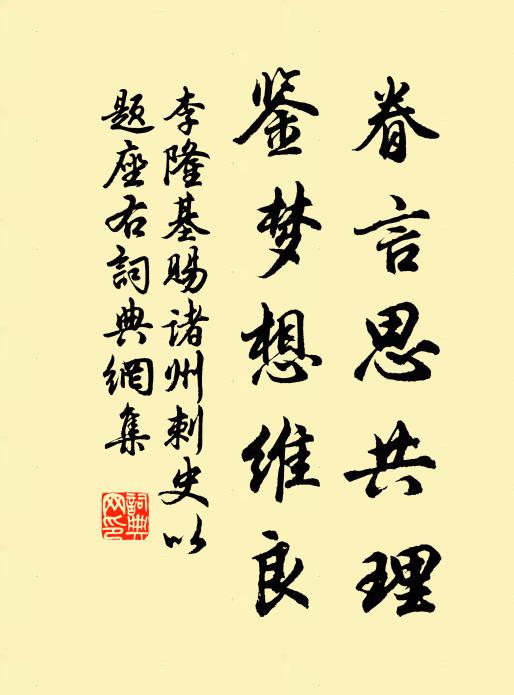 眷言思共理
鉴梦想维良
李隆基賜诸州刺史以
题座右詞典網集
詞典网印